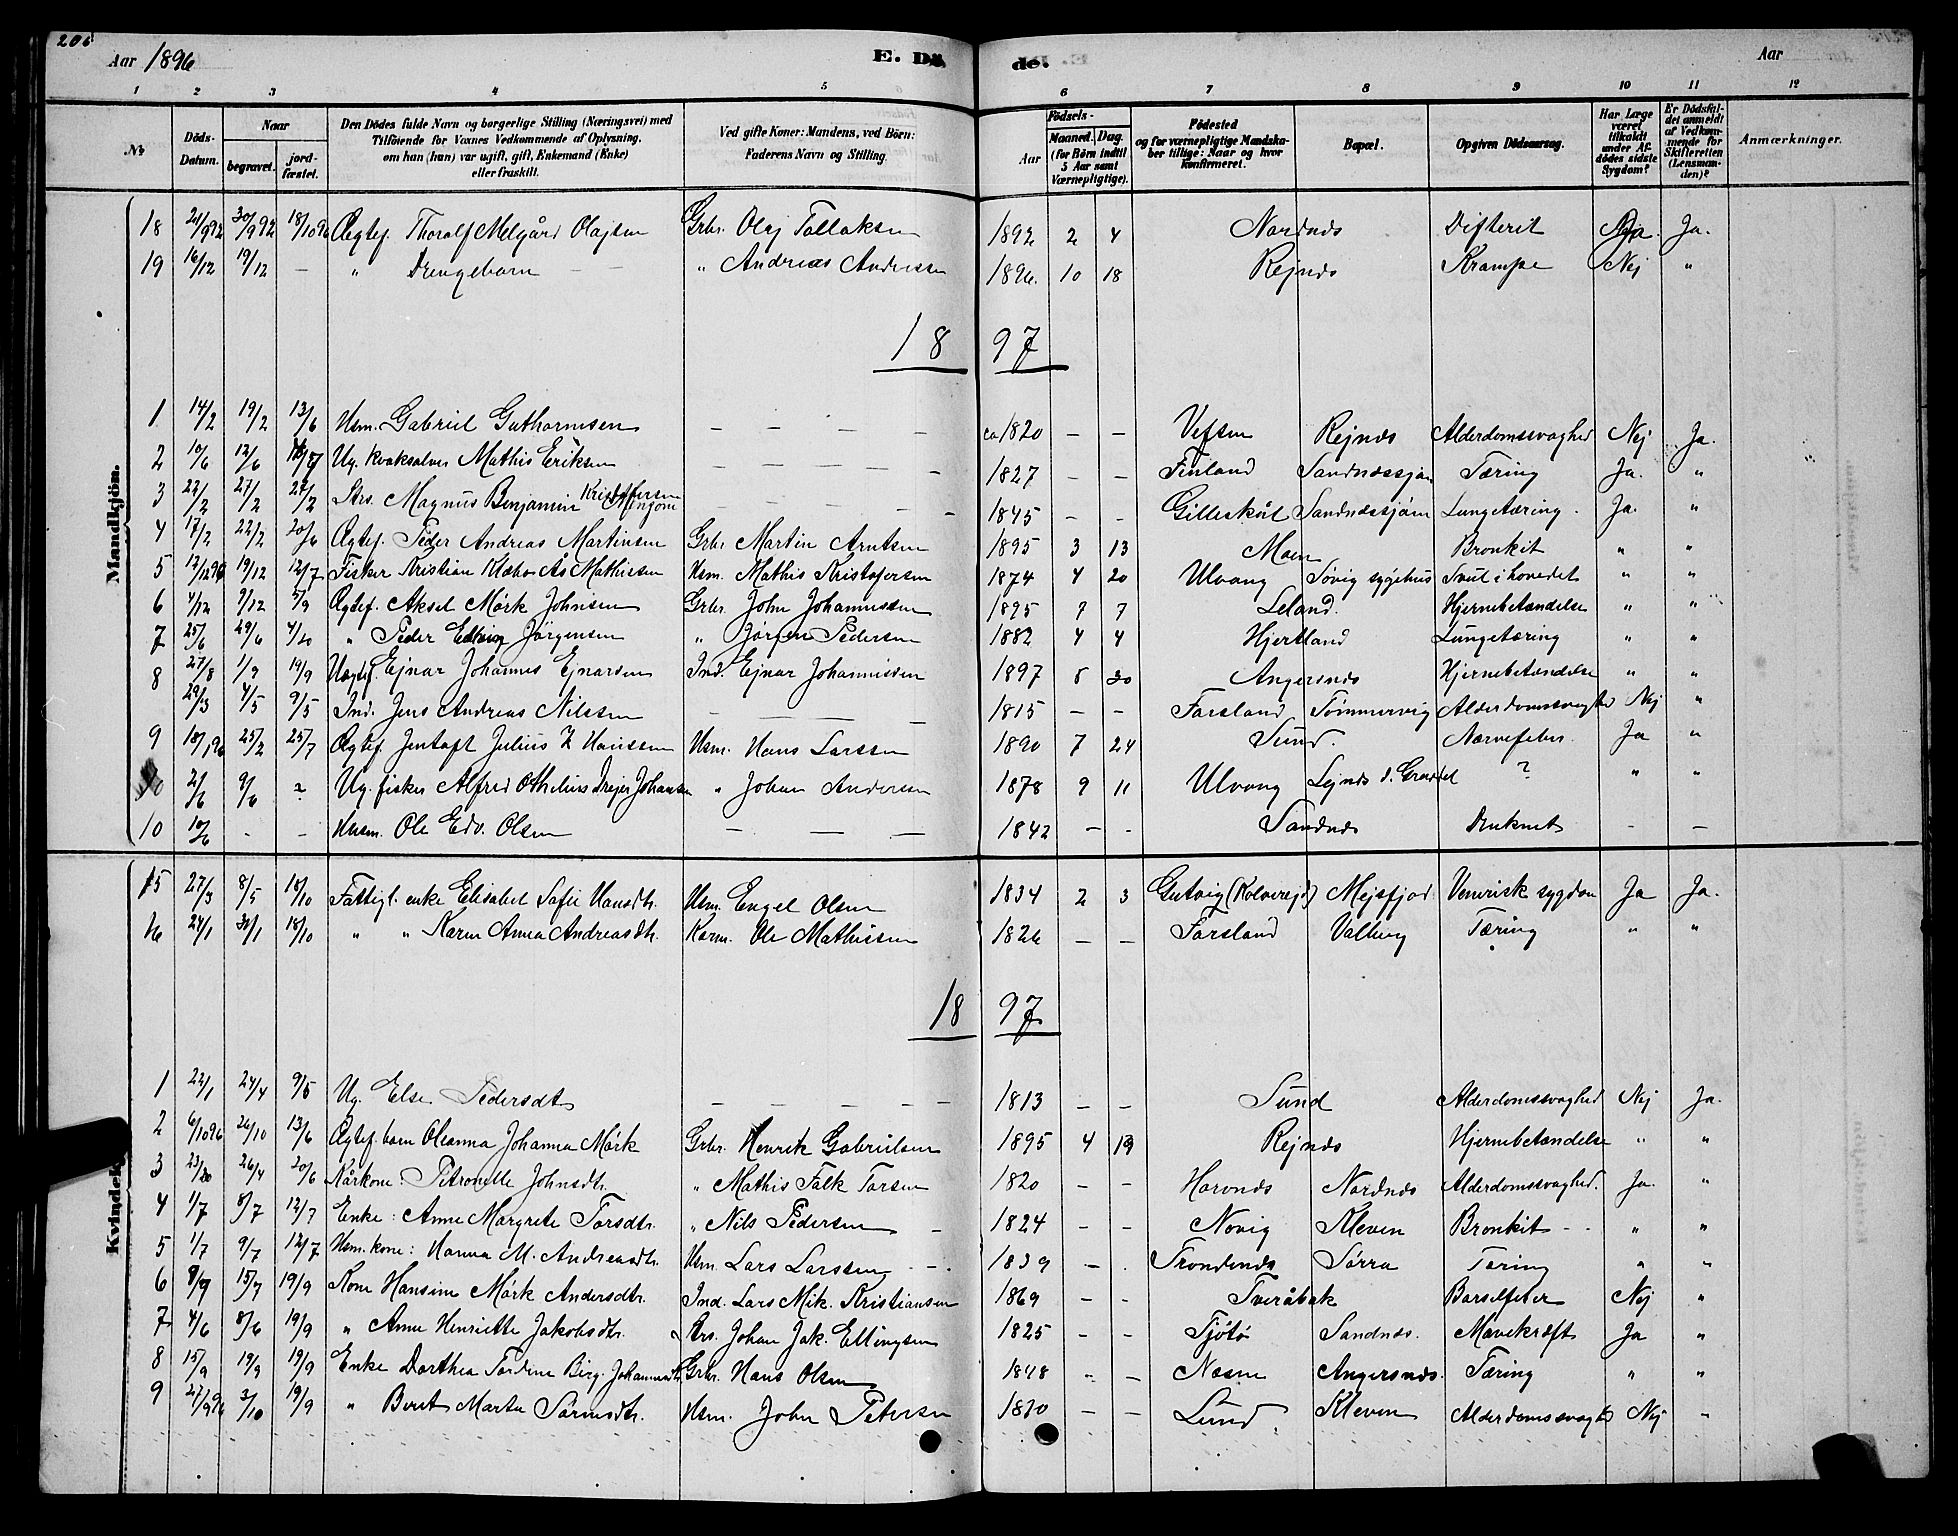 206
Aar 1896 E. Dö de. Aar
1 2 3 4 5 6 7 8 9 10 11 12
No. Döds-Datum. Naar begravet. jord-fæstet. Den Dödes fulde Navn og borgerlige Stilling (Næringsvei) med Tilföiende for Voxnes Vedkommende af Oplysning, om han (hun) var ugift, gift, Enkemand (Enke) eller fraskilt. Ved gifte Koner: Mandens, ved Börn: Faderens Navn og Stilling. Födsels- Aar Maaned. Dag. (for Börn indtil 5 Aar samt Værnepligtige). Födested og for værnepligtige Mandska-ber tillige: Naar og hvor konfirmeret. Bopæl. Opgiven Dödsaarsag. Har Læge været tilkaldt under Af-dödes sidste Sygdom? Er Dödsfal-det anmeldt af Vedkom-mende for Skifteretten (Lensman-den)? Anmærkninger.
Mandkjön.
18 21/9 92 30/9 92 18/10 96 Ægtef. Thoralf Melgård Olajsen Grbr. Olaj Tollaksen 1892 2 4 Nordnæs Difterit Ja. Ja.
19 16/12 19/12 – " Drengebarn – – " Andreas Andressen 1896. 10 18 Rejnæs Krampe Nej "
18 97
1 14/2 19/2 13/6 Hsm. Gabriel Guthormsen – – – – ca 1820 – – Vefsen Rejnæs Alderdomssvaghed Nej Ja.
2 10/6 12/6 Ug. kvaksalver Mathis Eriksen – – – – 1827 – – Finland Sandnæssjøen Tæring Ja. "
3 22/2 27/2 27/2 Strs. Magnus Benjamin Kristoffersen – – – – 1845 – – Gilleskål Sandnæssjøen Lungetæring. Ja. "
4 17/2 22/2 20/6 Ægtef. Peder Andreas Martinsen Grbr Martin Arntsen 1895 3 13 Moen Bronkit " "
5 12/12 96 19/12 12/7 Fisker Kristian Klæbo Ås Mathissen Hsm. Mathis Kristofersen 1874 4 20 Ulvang Søvig sygehus Svul i hovedet " "
6 4/12 9/12 5/9 Ægtef. Aksel Mörk Johnsen Grbr. John Johannessen 1895 7 7 Leland. Hjernebetændelse " "
7 25/6 29/6 4/20 " Peder Edvin Jörgensen " Jörgen Pedersen 1882 4 4 Hjertland Lungetæring " "
8 27/8 1/9 19/9 Uægtef. Ejnar Johannes Ejnarsen Ind. Ejnar Johannissen 1897 5 20 Angersnæs Hjernebetændelse " "
29/3 4/5 9/5 Ind. Jens Andreas Nilssen – – – – 1815 – – Farsland Tømmervig Alderdomssvaghed Nej "
9 18/1 96 25/2 25/7 Ægtef. Jentoft Julius Z Hanssen Hsm. Hans Larssen 1890 7 24 Sund. Nervefeber. Ja "
2/6 9/6 ? Ug. fisker Alfred Othelius Drejer Johansen " Johan Andersen 1878 9 11 Ulvang ? " "
10 10/6 - - Husm. Ole Edv. Olsen – – – 1842 – - Sandnæs Druknet – –
15 27/3 8/5 18/10 Fattigl. enke Elisabet Sofie Hansdtr. Hsm. Engel Olsen 1834 2 3 Gutvig (Kolvereid) Mejsfjord Venerisk sygdom Ja Ja.
16 24/1 30/1 18/10 " " Karen Anna Andreasdtr. Karm. Ole Mathissen 1826 – – Farsland Valberg Tæring " "
18 97
Kvindekjön.
1 22/1 24/4 9/5 Ug. Else Pedersdtr – – – – 1813 – – Sund Alderdomssvaghed Nej Ja.
2 6/10 96 26/10 13/6 Ægtef. barn Oleanna Johanna Mörk Grbr. Henrik Gabrielsen 1895 4 19 Rejnæs Hjernebetændelse " "
3 23/20 26/4 20/6 Kårkone: Petronelle Johnsdtr. " Mathis Falk Torsen 1820 – – Hornæs Nordnæs Alderdomssvaghed. Ja. "
4 1/7 8/7 12/7 Enke: Anne Margrete Torsdtr. " Nils Pedersen – 1824 - - Novig Kleven Bronkit – – " "
5 1/7 9/7 12/7 Hsm. kone: Hanna M. Andreasdtr. Hsm. Lars Larssen – – 1839 – . Trondenæs Sørra Tæring " "
6 8/7 15/7 19/9 Kone Hansine Mörk Andersdtr. Ind. Lars Mik. Kristiansen 1869 - - Tveråbak Barselfeber Nej "
7 4/6 8/6 19/9 " Anne Henriette Jakobsdtr. Strs. Johan Jak. Ellingsen 1825 – – Tjötö Sandnæs. Mavekræft Ja "
8 15/9 19/9 19/9 Enke Dorthea Tordine Birg. Johannesdtr. Grbr. Hans Olsen 1848 " – Næsne Angersnæs. Tæring " "
9 27/9 96 3/10 19/9 " Berit Marta Sörensdtr. Hsm. John Petersen 1810 – – Lund Kleven Alderdomssvagh. Nej "